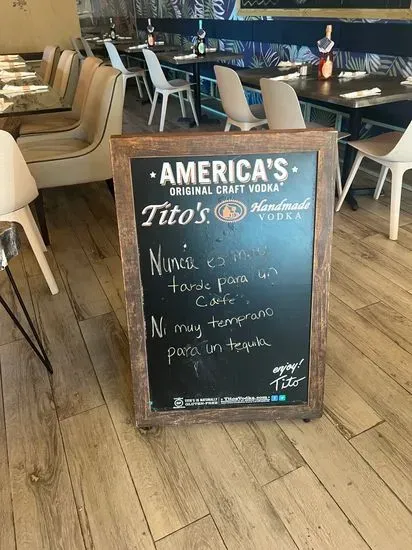 ★ AMERICA'S ★
ORIGINAL CRAFT VODKA®
Tito's Handmade
VODKA
Nunca es muy
tarde para un
Cafe
Ni muy temprano
para un tequila
enjoy!
Tito
TITO'S IS NATURALLY
GLUTEN-FREE
TitosVodka.com